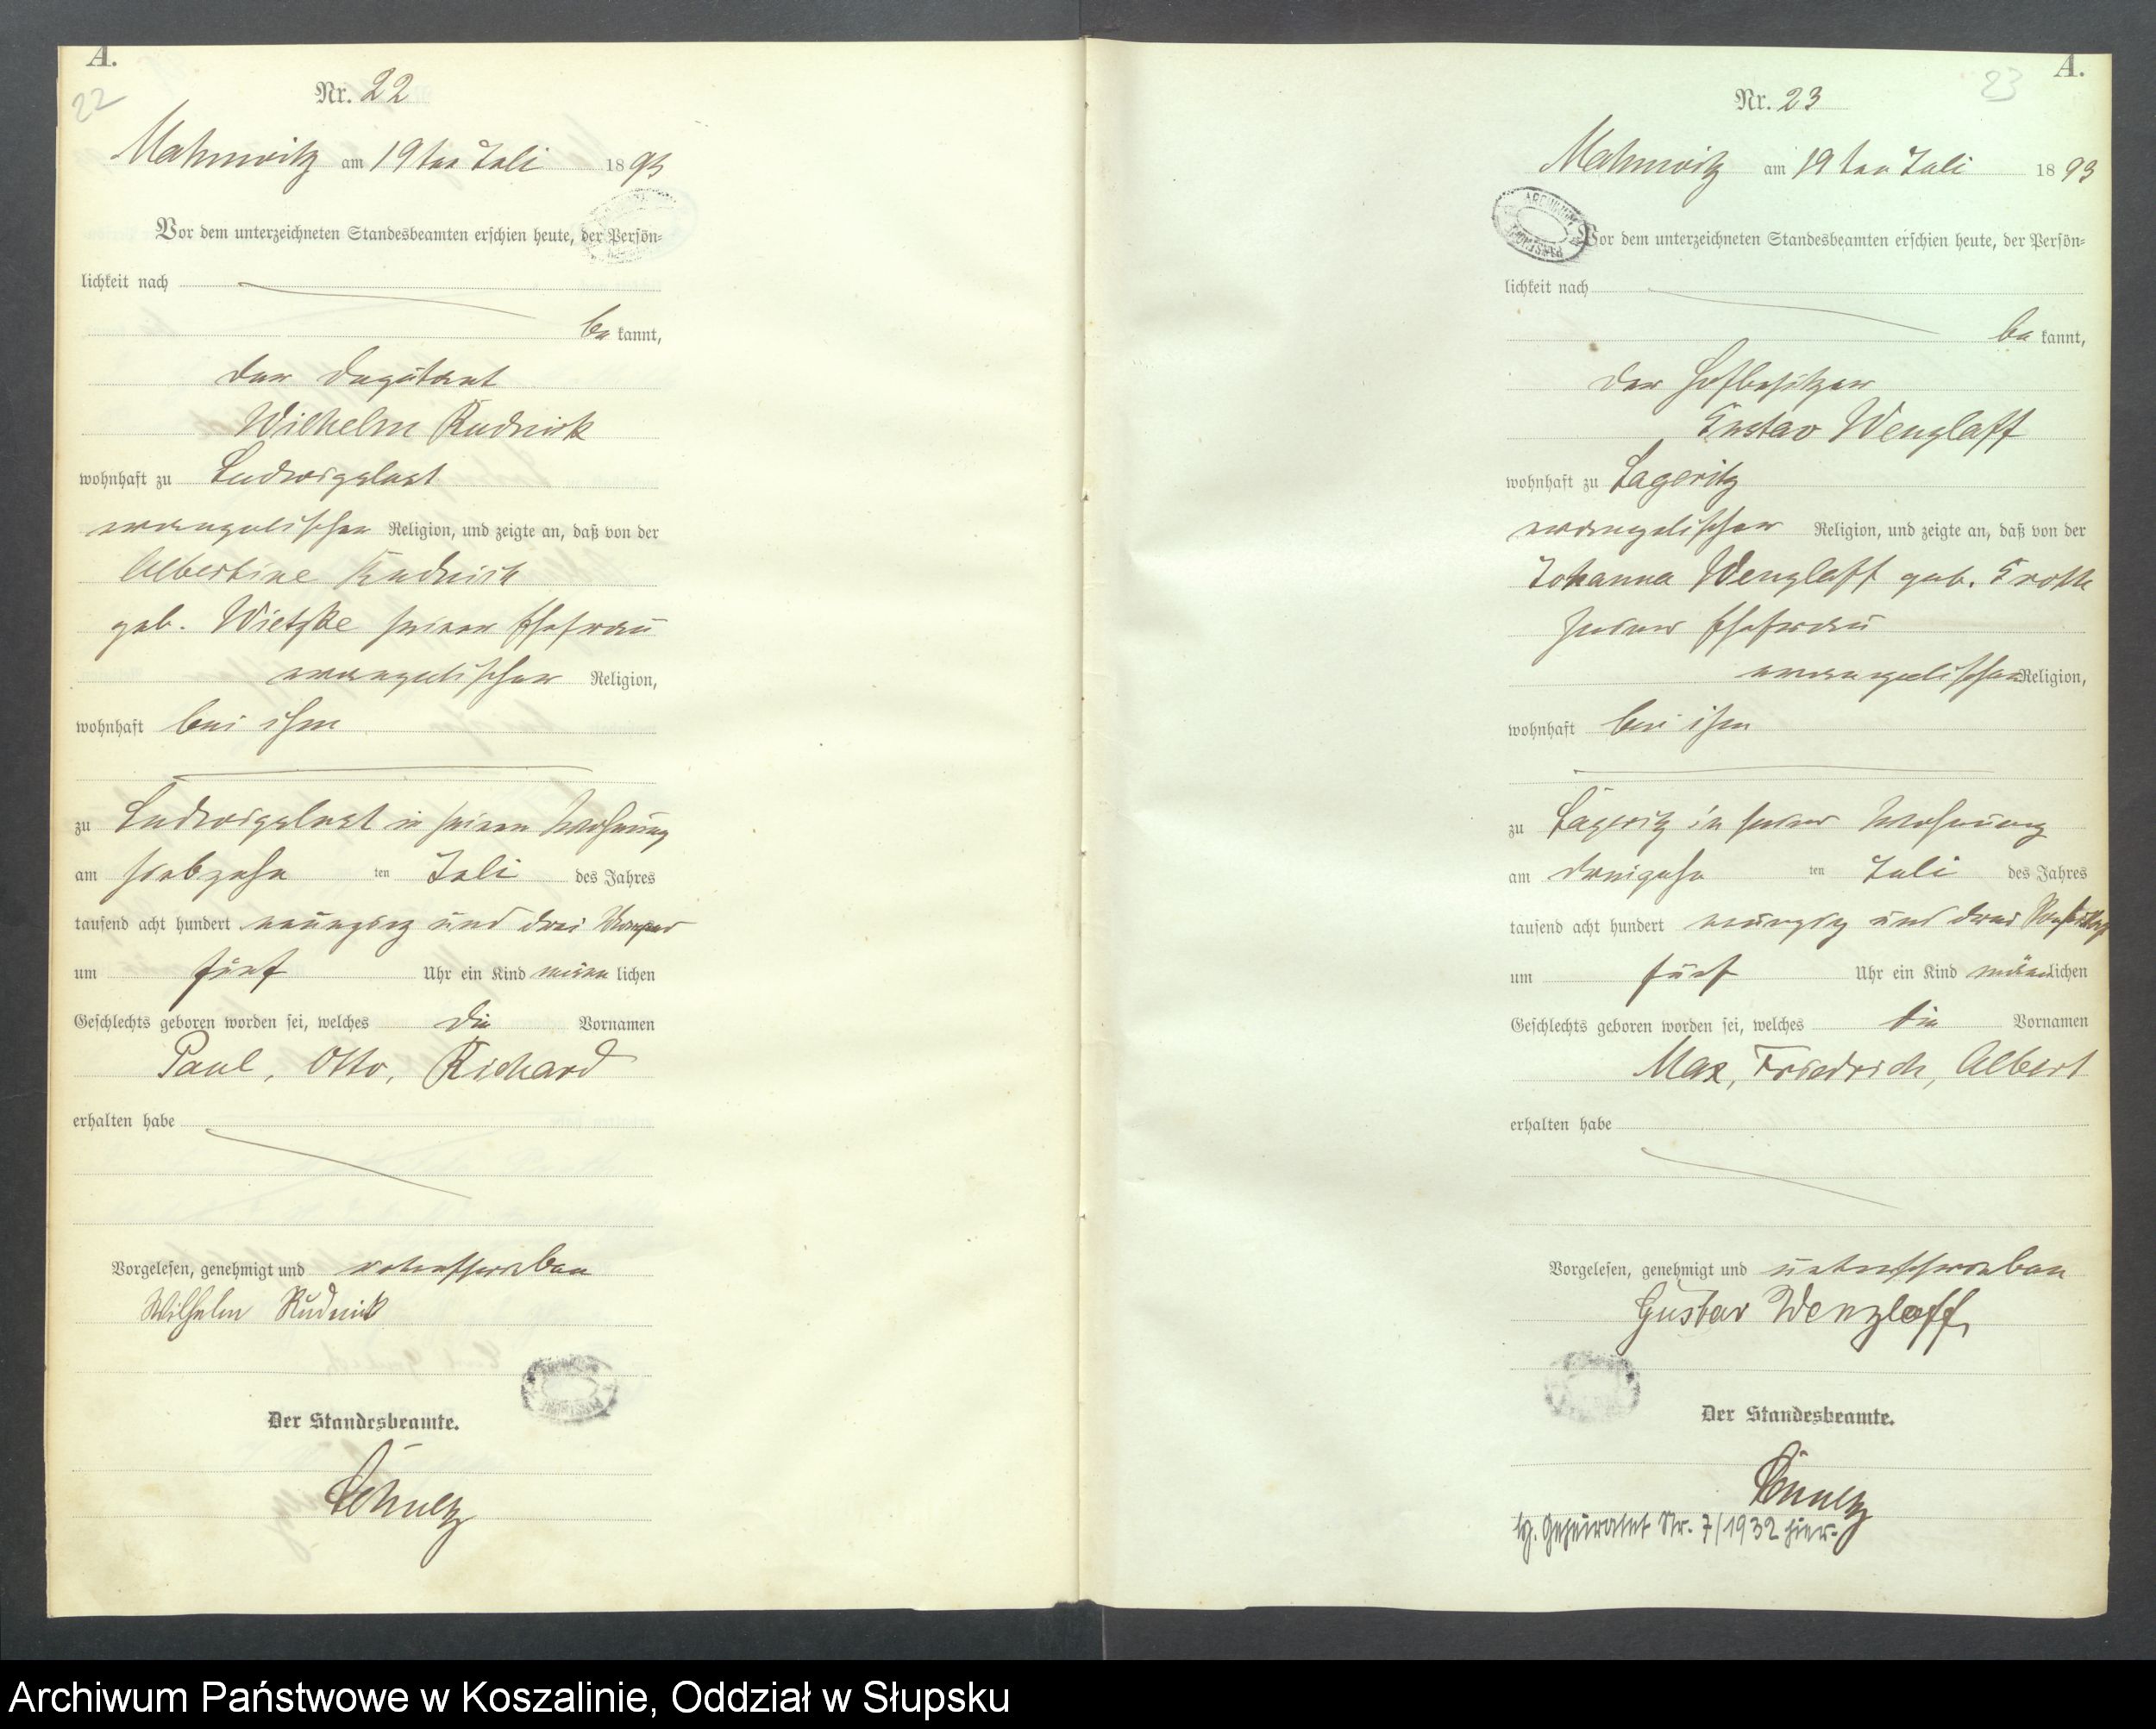 A.
22
Nr. 22
Mahnwitz am 19ten Juli 1893
Vor dem unterzeichneten Standesbeamten erschien heute, der Persön-
lichkeit nach
be kannt,
der Deputant
Wilhelm Rudnick
wohnhaft zu Ludwigslust
evangelischer Religion, und zeigte an, daß von der
Albertine Rudnick
geb. Wietzke seiner Ehefrau
evangelischer Religion,
wohnhaft bei ihm
zu Ludwigslust in seiner Wohnung
am siebzehn ten Juli des Jahres
tausend acht hundert neunzig und drei
um fünf Uhr ein Kind männ lichen
Geschlechts geboren worden sei, welches die Vornamen
Paul, Otto, Richard
erhalten habe
Vorgelesen, genehmigt und unterschrieben
Wilhelm Rudnick
Der Standesbeamte.
Schultz
A.
23
Nr. 23
Mahnwitz am 19ten Juli 1893
ARCHIWUM PAŃSTWOWE
Vor dem unterzeichneten Standesbeamten erschien heute, der Persön-
lichkeit nach
be kannt,
der Hofbesitzer
Gustav Wenzlaff
wohnhaft zu Lageritz
evangelischer Religion, und zeigte an, daß von der
Johanna Wenzlaff geb.
seiner Ehefrau
evangelischer Religion,
wohnhaft bei ihm
zu Lageritz in seiner Wohnung
am dreizehn ten Juli des Jahres
tausend acht hundert neunzig und drei Nachmittags
um fünf Uhr ein Kind männlichen
Geschlechts geboren worden sei, welches die Vornamen
Max, Friedrich, Albert
erhalten habe
Vorgelesen, genehmigt und unterschrieben
Gustav Wenzlaff
Der Standesbeamte.
Schultz
Geheiratet Nr. 7/1932 hier.
Archiwum Państwowe w Koszalinie, Oddział w Słupsku